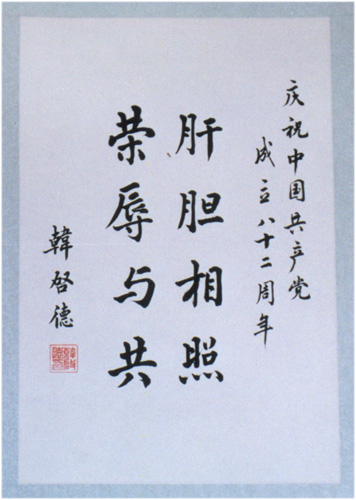 庆祝中国共产党
成立八十二周年
肝胆相照
荣辱与共
韓启德